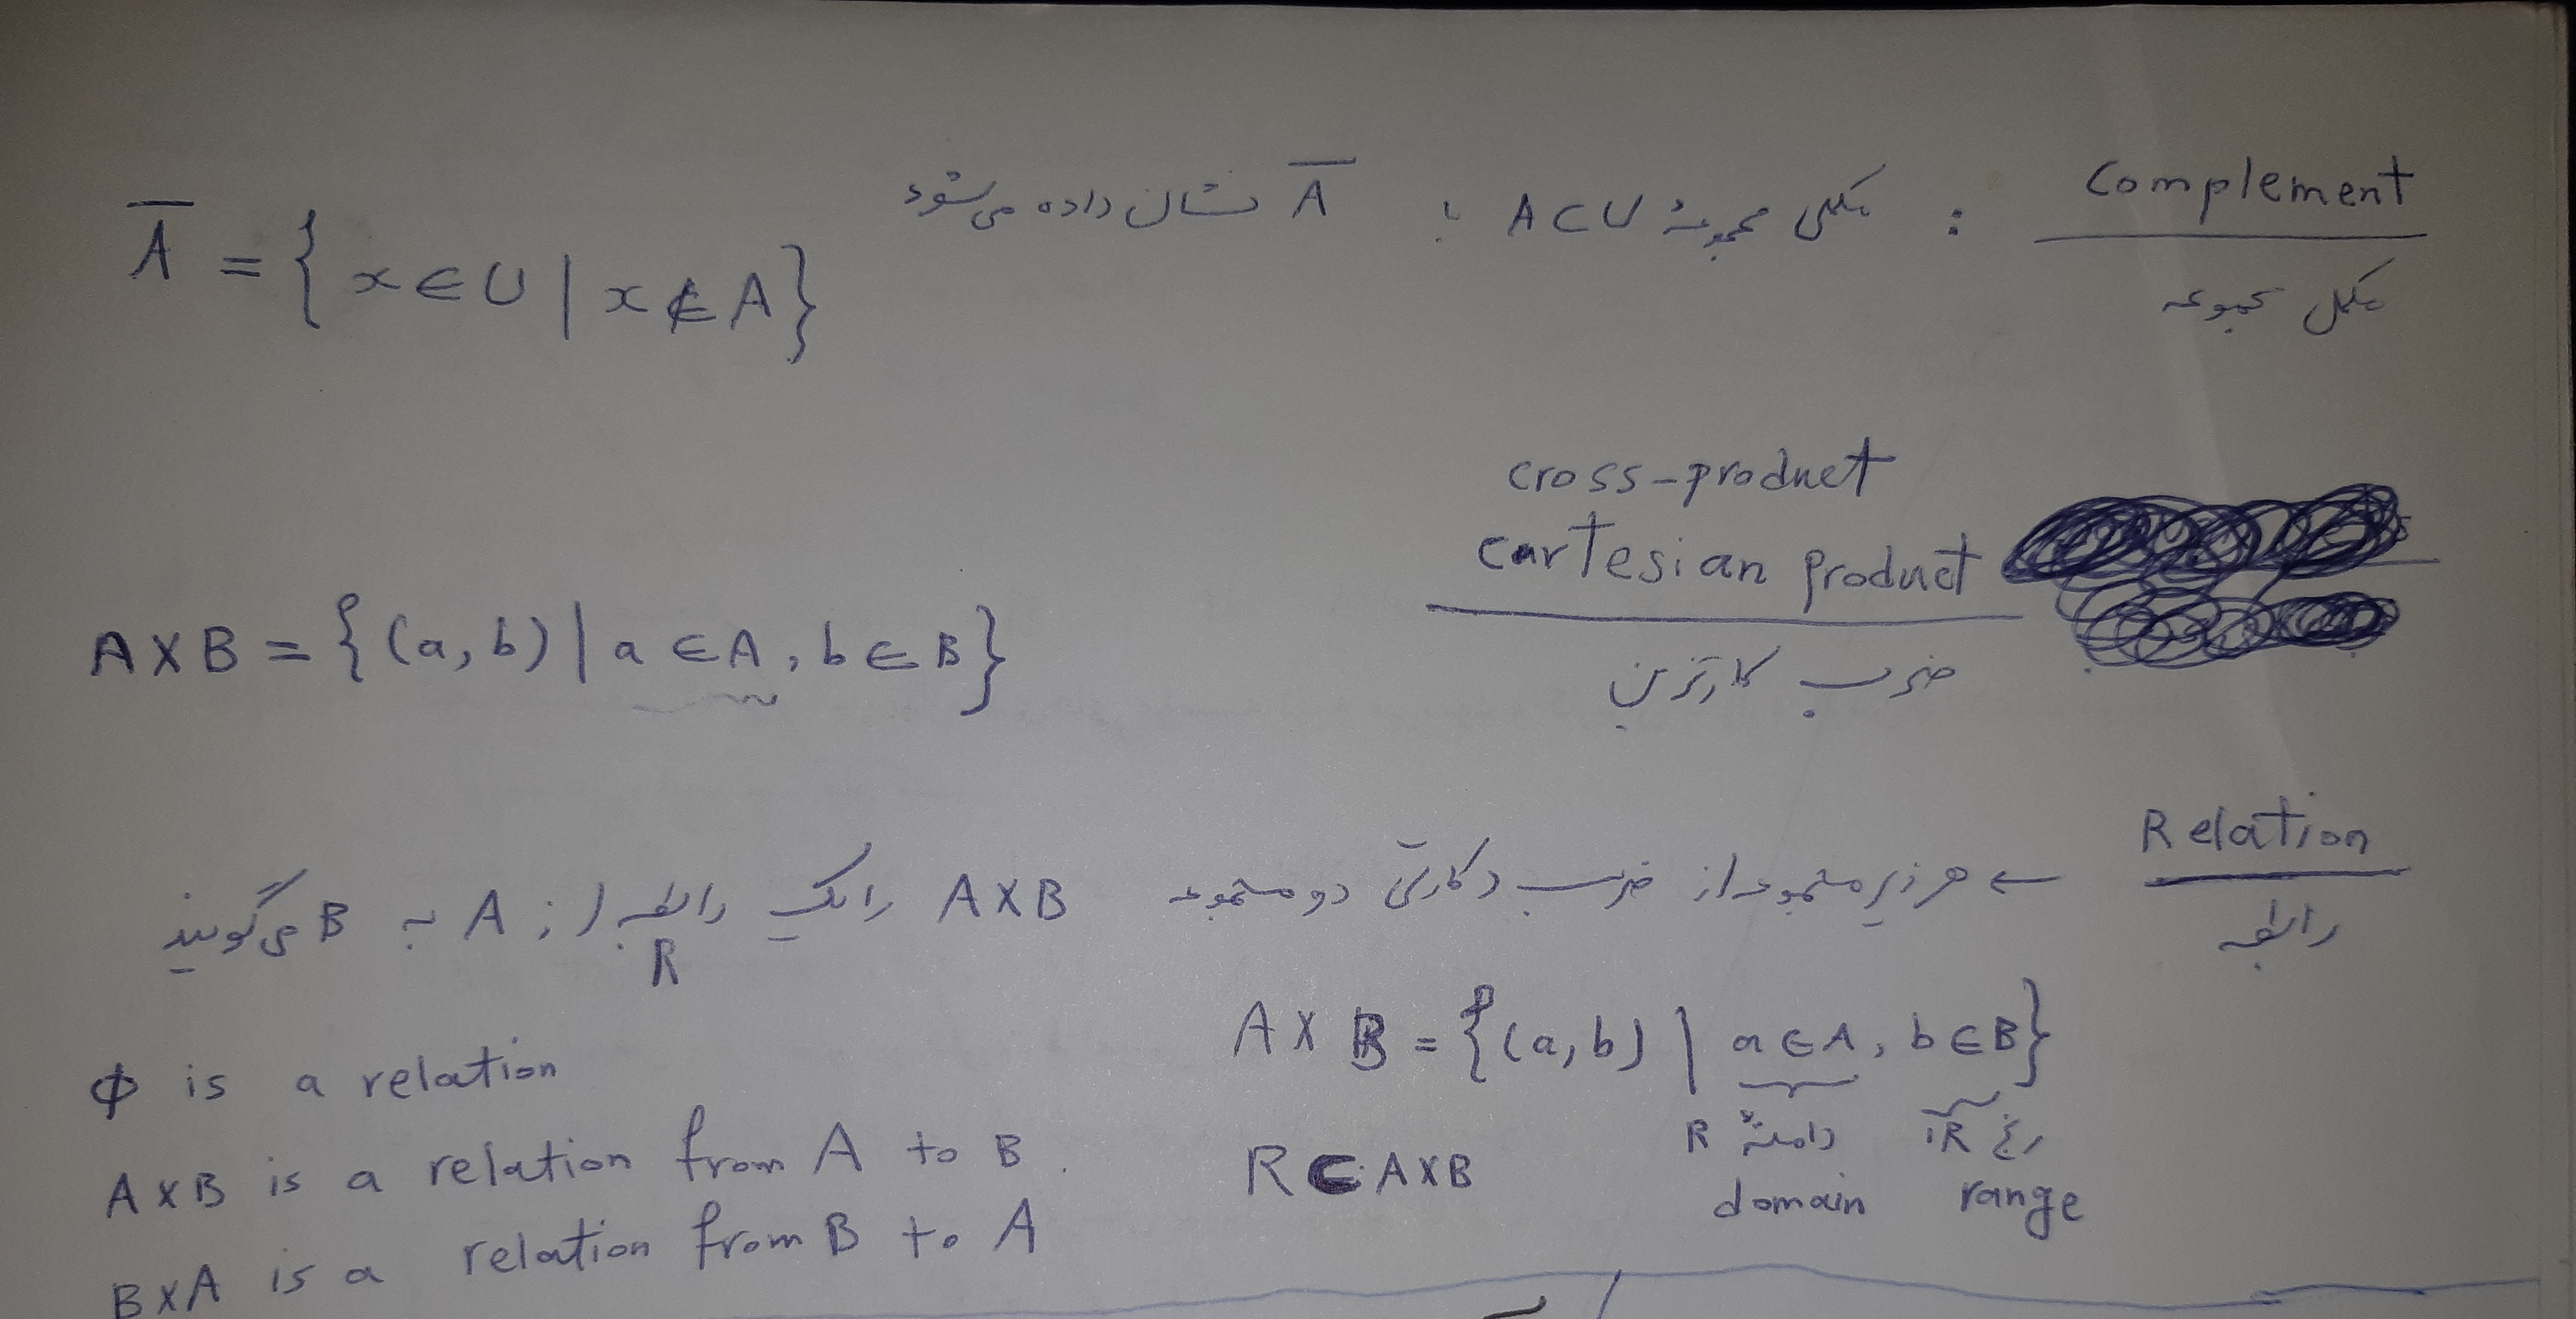 Complement : مکمل مجموعهٔ A⊂U با A̅ نشان داده می‌شود
مکمل مجموعه
A̅ = { x∈U | x∉A }
cross-product
cartesian product
ضرب کارتزین
A×B = { (a,b) | a∈A, b∈B }
Relation ← هر زیرمجموعه از ضرب دکارتی دو مجموعه A×B را یک رابطه از A به B می‌گویند
رابطه
R
A×B = { (a,b) | a∈A, b∈B }
دامنهٔ R
domain range
R⊂A×B
Φ is a relation
A×B is a relation from A to B.
B×A is a relation from B to A